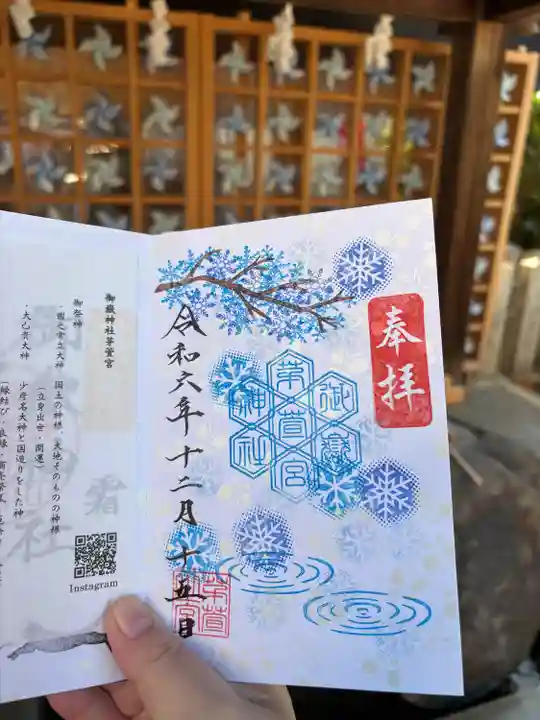 奉拝
御嶽
茅萱宮
神社
令和六年十二月十五日
茅萱宮
御嶽神社茅萱宮
御祭神
・國之常立大神　国土の神様・大地そのものの神様
（立身出世・開運）
・大己貴大神　少彦名大神と国造りをした神
霜
Instagram